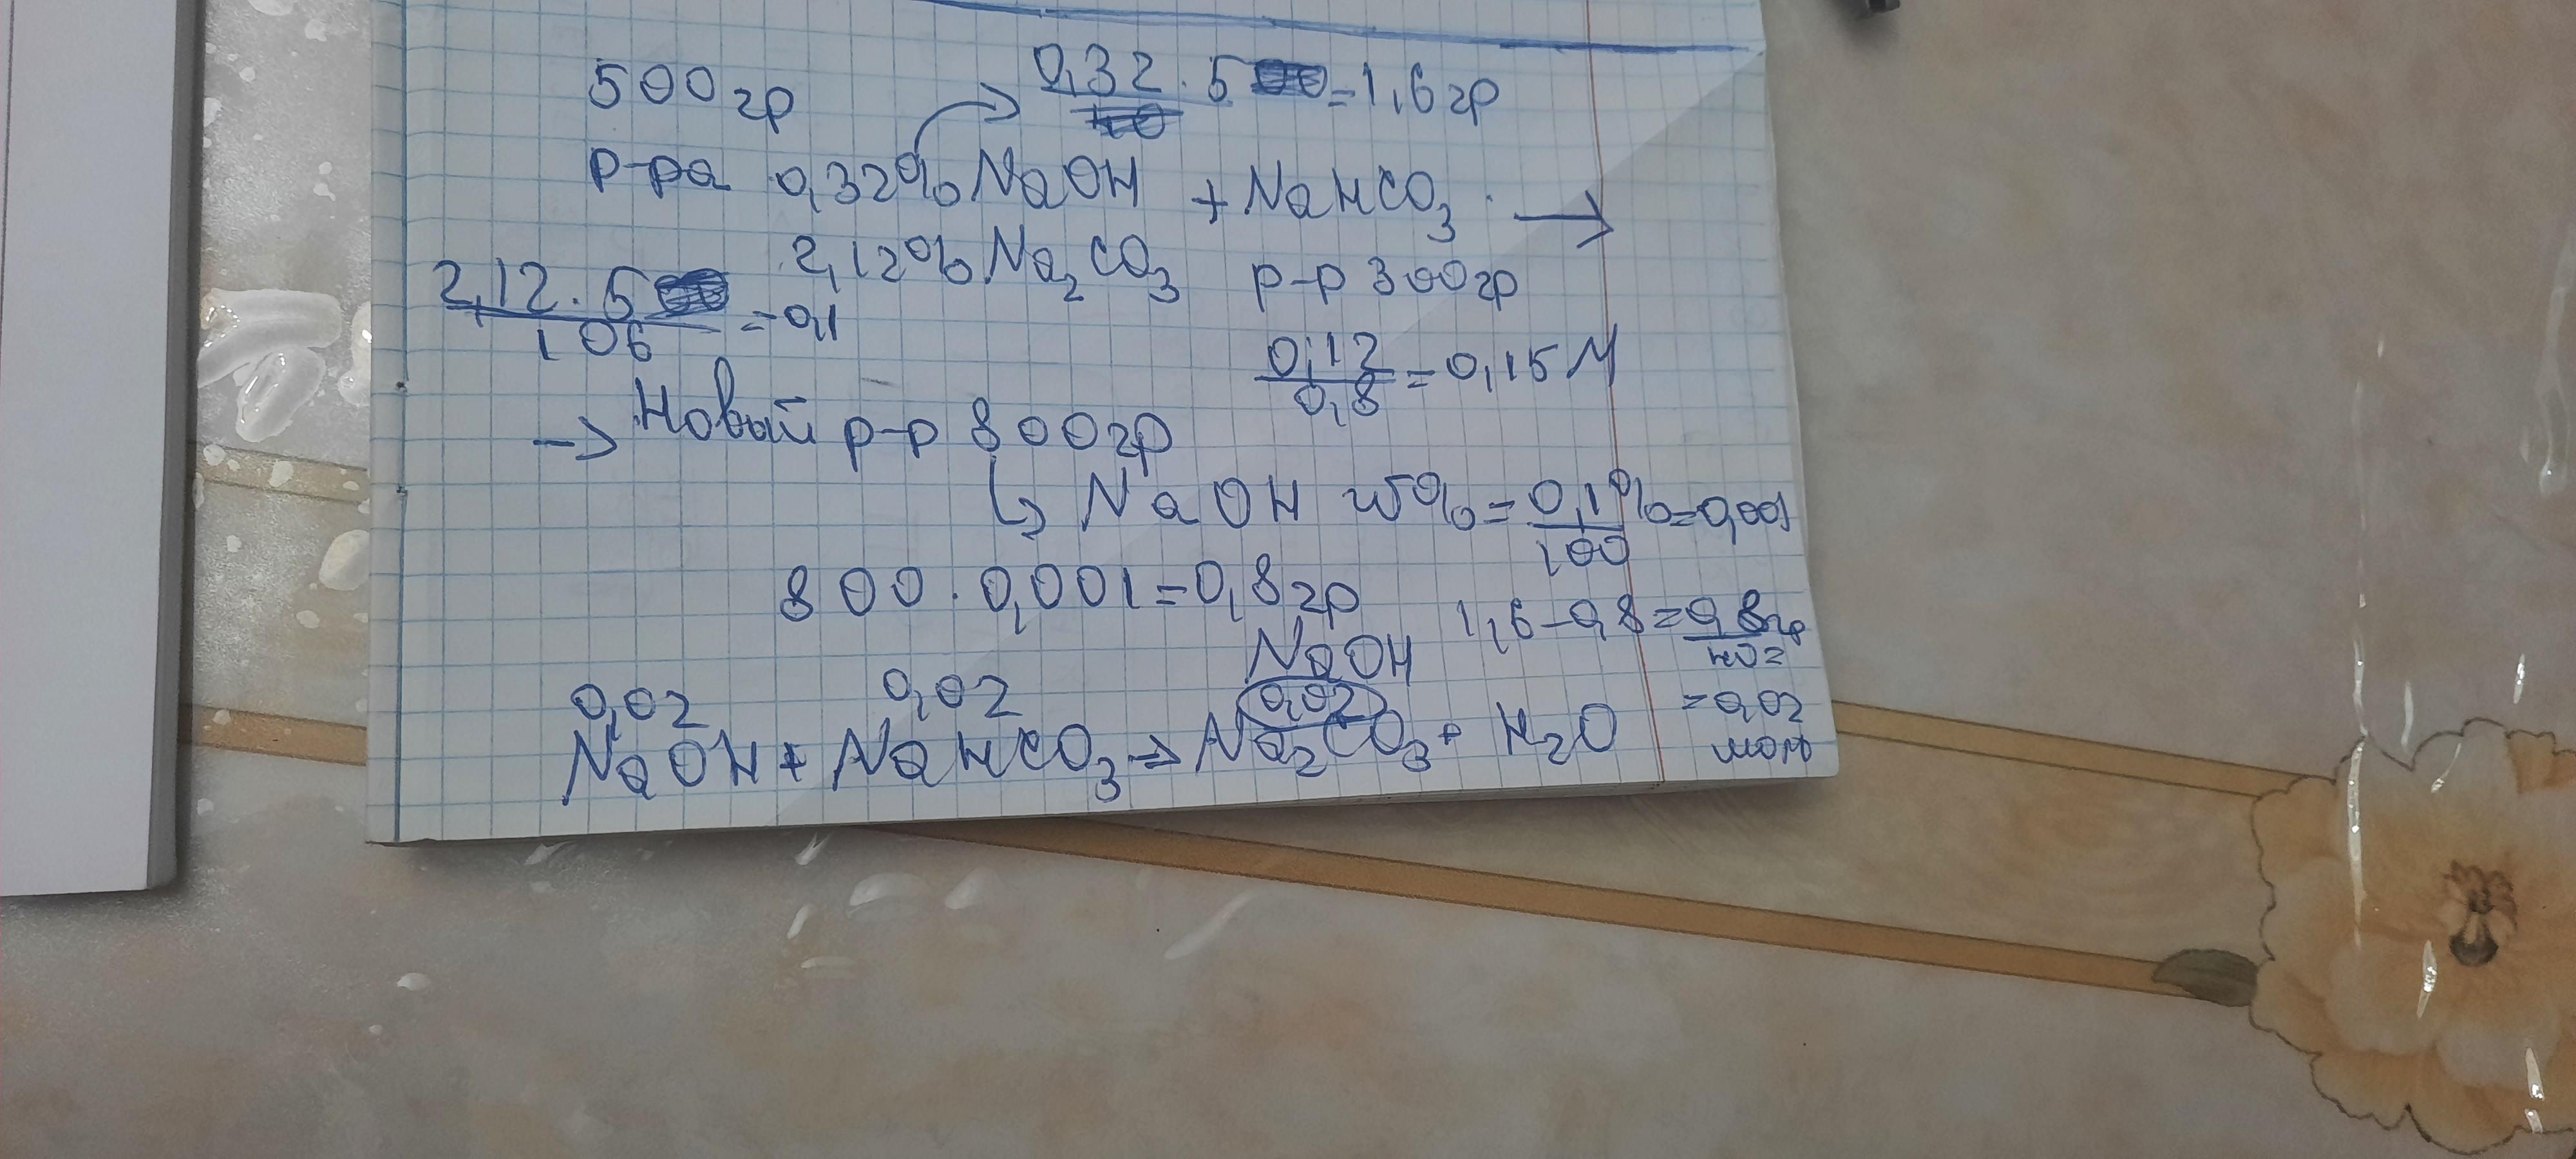 500 гр 0,32 · 5 = 1,6 гр
р-ра 0,32% NaOH + NaHCO₃ →
2,12% Na₂CO₃ р-р 300 гр
2,12 · 5 / 106 = 0,1
0,12 / 0,8 = 0,15 М
→ Новый р-р 800 гр
↳ NaOH w% = 0,1% / 100 = 0,001
800 · 0,001 = 0,8 гр
NaOH
1,6 - 0,8 = 0,8 гр / 40 =
= 0,02
моль
0,02 0,02 0,02
NaOH + NaHCO₃ → Na₂CO₃ + H₂O